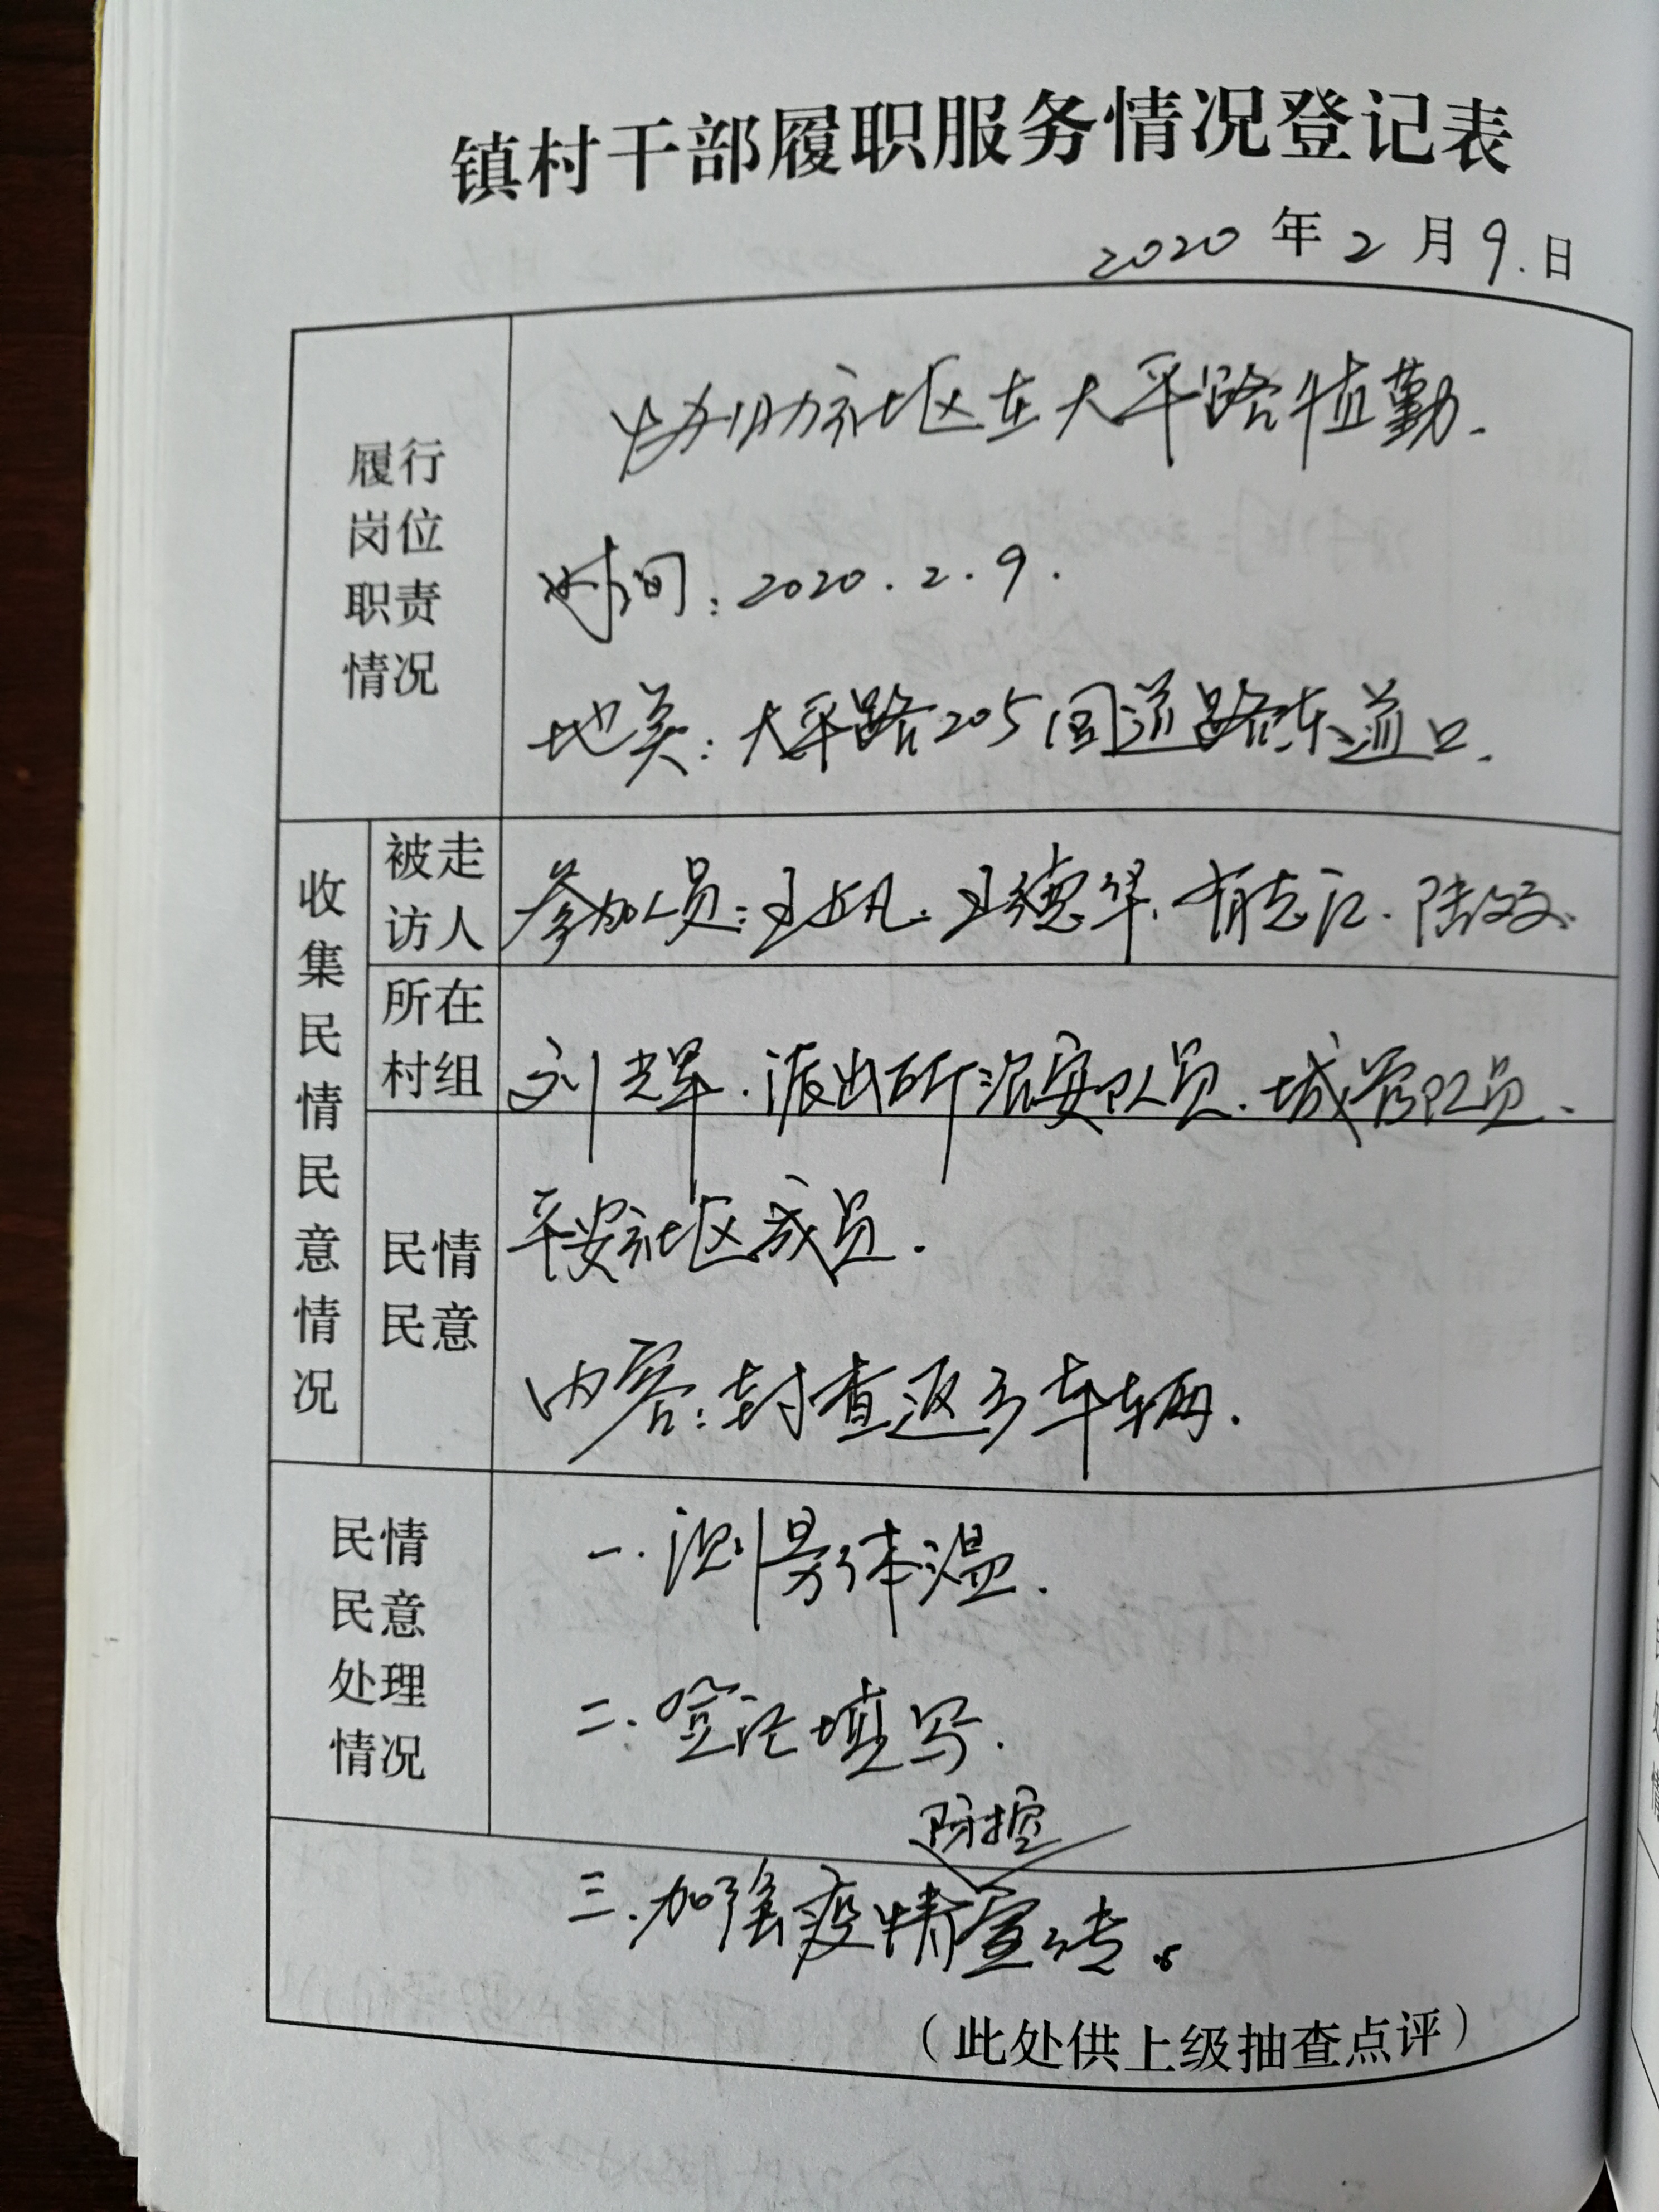 镇村干部履职服务情况登记表
2020年2月9.日
履行
岗位
职责
情况
协助社区在太平路值勤.
时间:2020.2.9.
地关:太平路205国道路东道口.
收集民情民意情况
被走
访人
参加人员:王 凡.王德华.有志江.陆
所在
村组
刘光军.派出所治安队员.城管队员、
民情
民意
平安社区成员.
内容:封查返乡车辆.
民情
民意
处理
情况
一.测量体温.
二.登记填写.
防控
三.加强疫情宣传。
(此处供上级抽查点评)